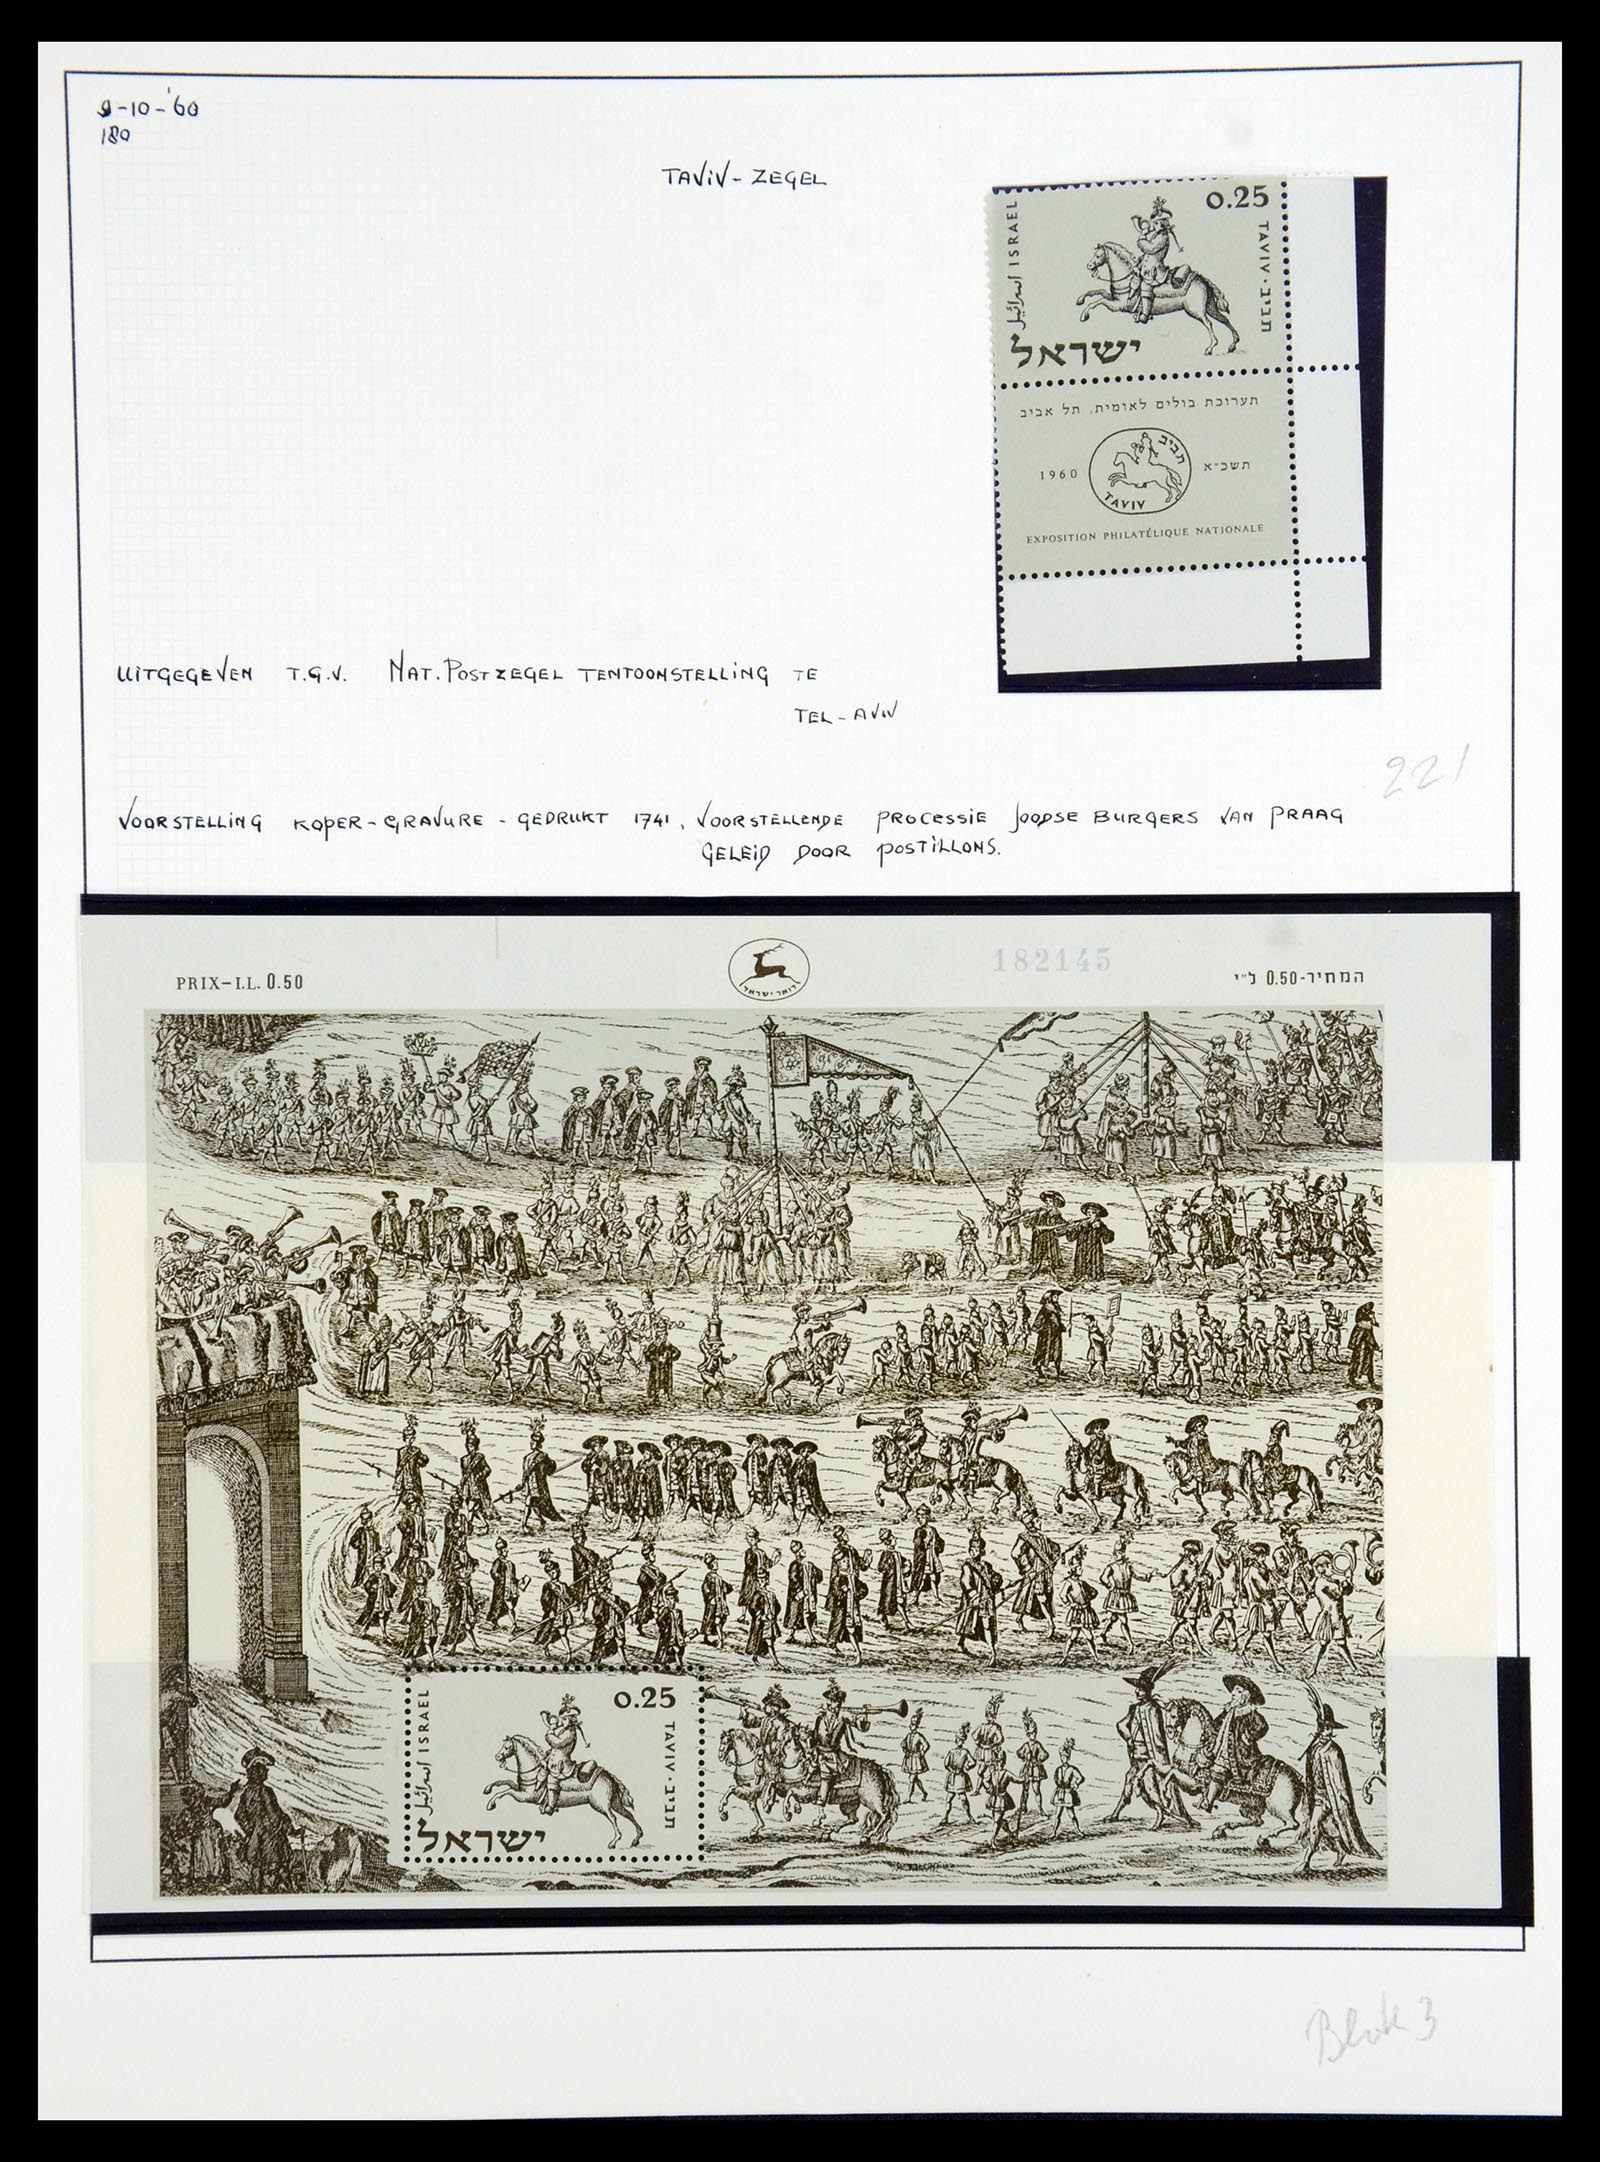 9-10-'60
180
TAViV-ZEGEL
0.25
ISRAEL
اسرائيل
TAVIV · תבי״ב
ישראל
תערוכת בולים לאומית, תל אביב
1960
תביב
TAVIV
תשכ״א
EXPOSITION PHILATÉLIQUE NATIONALE
UITGEGEVEN T.G.V. NAT. POSTZEGEL TENTOONSTELLING TE
TEL-AVIV
221
VOORSTELLING KOPER-GRAVURE - GEDRUKT 1741, VOORSTELLENDE PROCESSIE JOODSE BURGERS VAN PRAAG
GELEID DOOR POSTILLONS.
PRIX-I.L. 0.50
דואר ישראל
182145
המחיר-0.50 ל״י
0.25
ISRAEL
اسرائيل
TAVIV · תבי״ב
ישראל
Blok 3